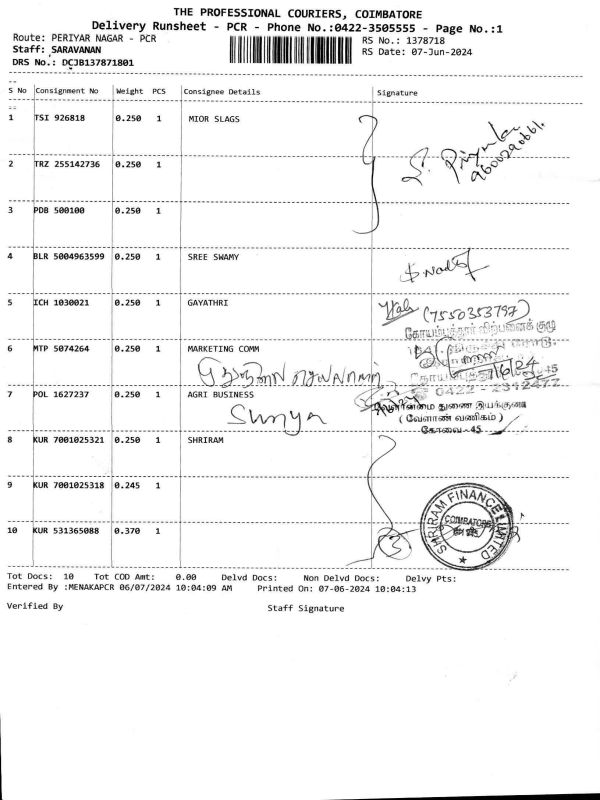 THE PROFESSIONAL COURIERS, COIMBATORE
Delivery Runsheet - PCR - Phone No.:0422-3505555 - Page No.:1
Route: PERIYAR NAGAR - PCR
RS No.: 1378718
Staff: SARAVANAN
RS Date: 07-Jun-2024
DRS No.: DCJB137871801
S No Consignment No Weight PCS Consignee Details Signature
1 TSI 926818 0.250 1 MIOR SLAGS
2 TRZ 255142736 0.250 1
3 PDB 500100 0.250 1
4 BLR 5004963599 0.250 1 SREE SWAMY
5 ICH 1030021 0.250 1 GAYATHRI
(7550353797)
கோயம்புத்தூர் விற்பனைக் குழு
6 MTP 5074264 0.250 1 MARKETING COMM
0422 - 2312477
7 POL 1627237 0.250 1 AGRI BUSINESS
Surya
வேளாண்மை துணை இயக்குனர்
( வேளாண் வணிகம் )
கோவை - 45
8 KUR 7001025321 0.250 1 SHRIRAM
9 KUR 7001025318 0.245 1
SHRIRAM FINANCE LIMITED
COIMBATORE
10 KUR 531365088 0.370 1
3
Tot Docs: 10 Tot COD Amt: 0.00 Delvd Docs: Non Delvd Docs: Delvy Pts:
Entered By :MENAKAPCR 06/07/2024 10:04:09 AM Printed On: 07-06-2024 10:04:13
Verified By Staff Signature